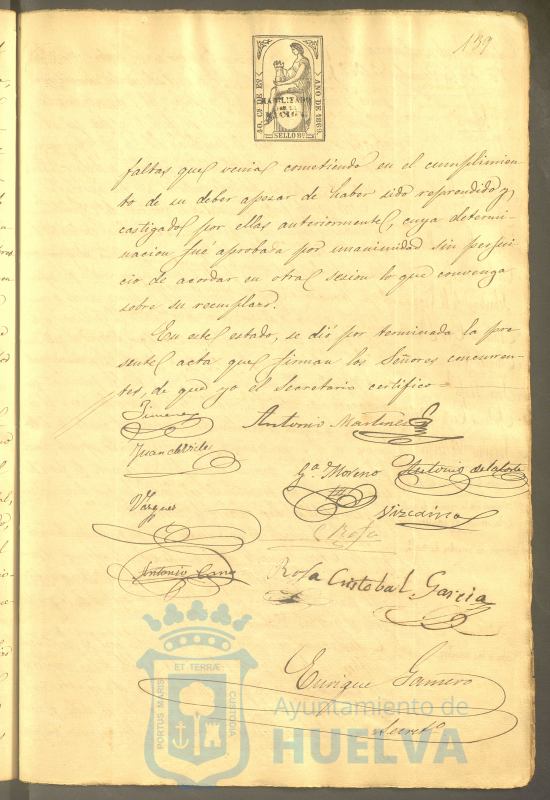 159
40. Cs. DE Eº.
AÑO DE 1869.
HABILITADO
POR LA
NACION.
SELLO 9º
faltas que venia cometiendo en el cumplimien
to de su deber apesar de haber sido reprendido y,
castigado por ellas anteriormente, cuya determi
nacion fué aprobada por unanimidad sin perjui
cio de acordar en otra sesion lo que convenga
sobre su reemplazo.
En este estado, se dió por terminada la pre
sente acta que firman los Señores concurren
tes, de que yo el Secretario certifico
Jimenez
Antonio Martinez
Juan
Gª. Moreno
Antonio de la Corte
Vazquez
Vizcaino
Rofa
Antonio Cano
Rofa Cristobal Garcia
Enrique Gamero
Secretº
ET TERRÆ
PORTUS MARIS
CUSTODIA
Ayuntamiento de
HUELVA